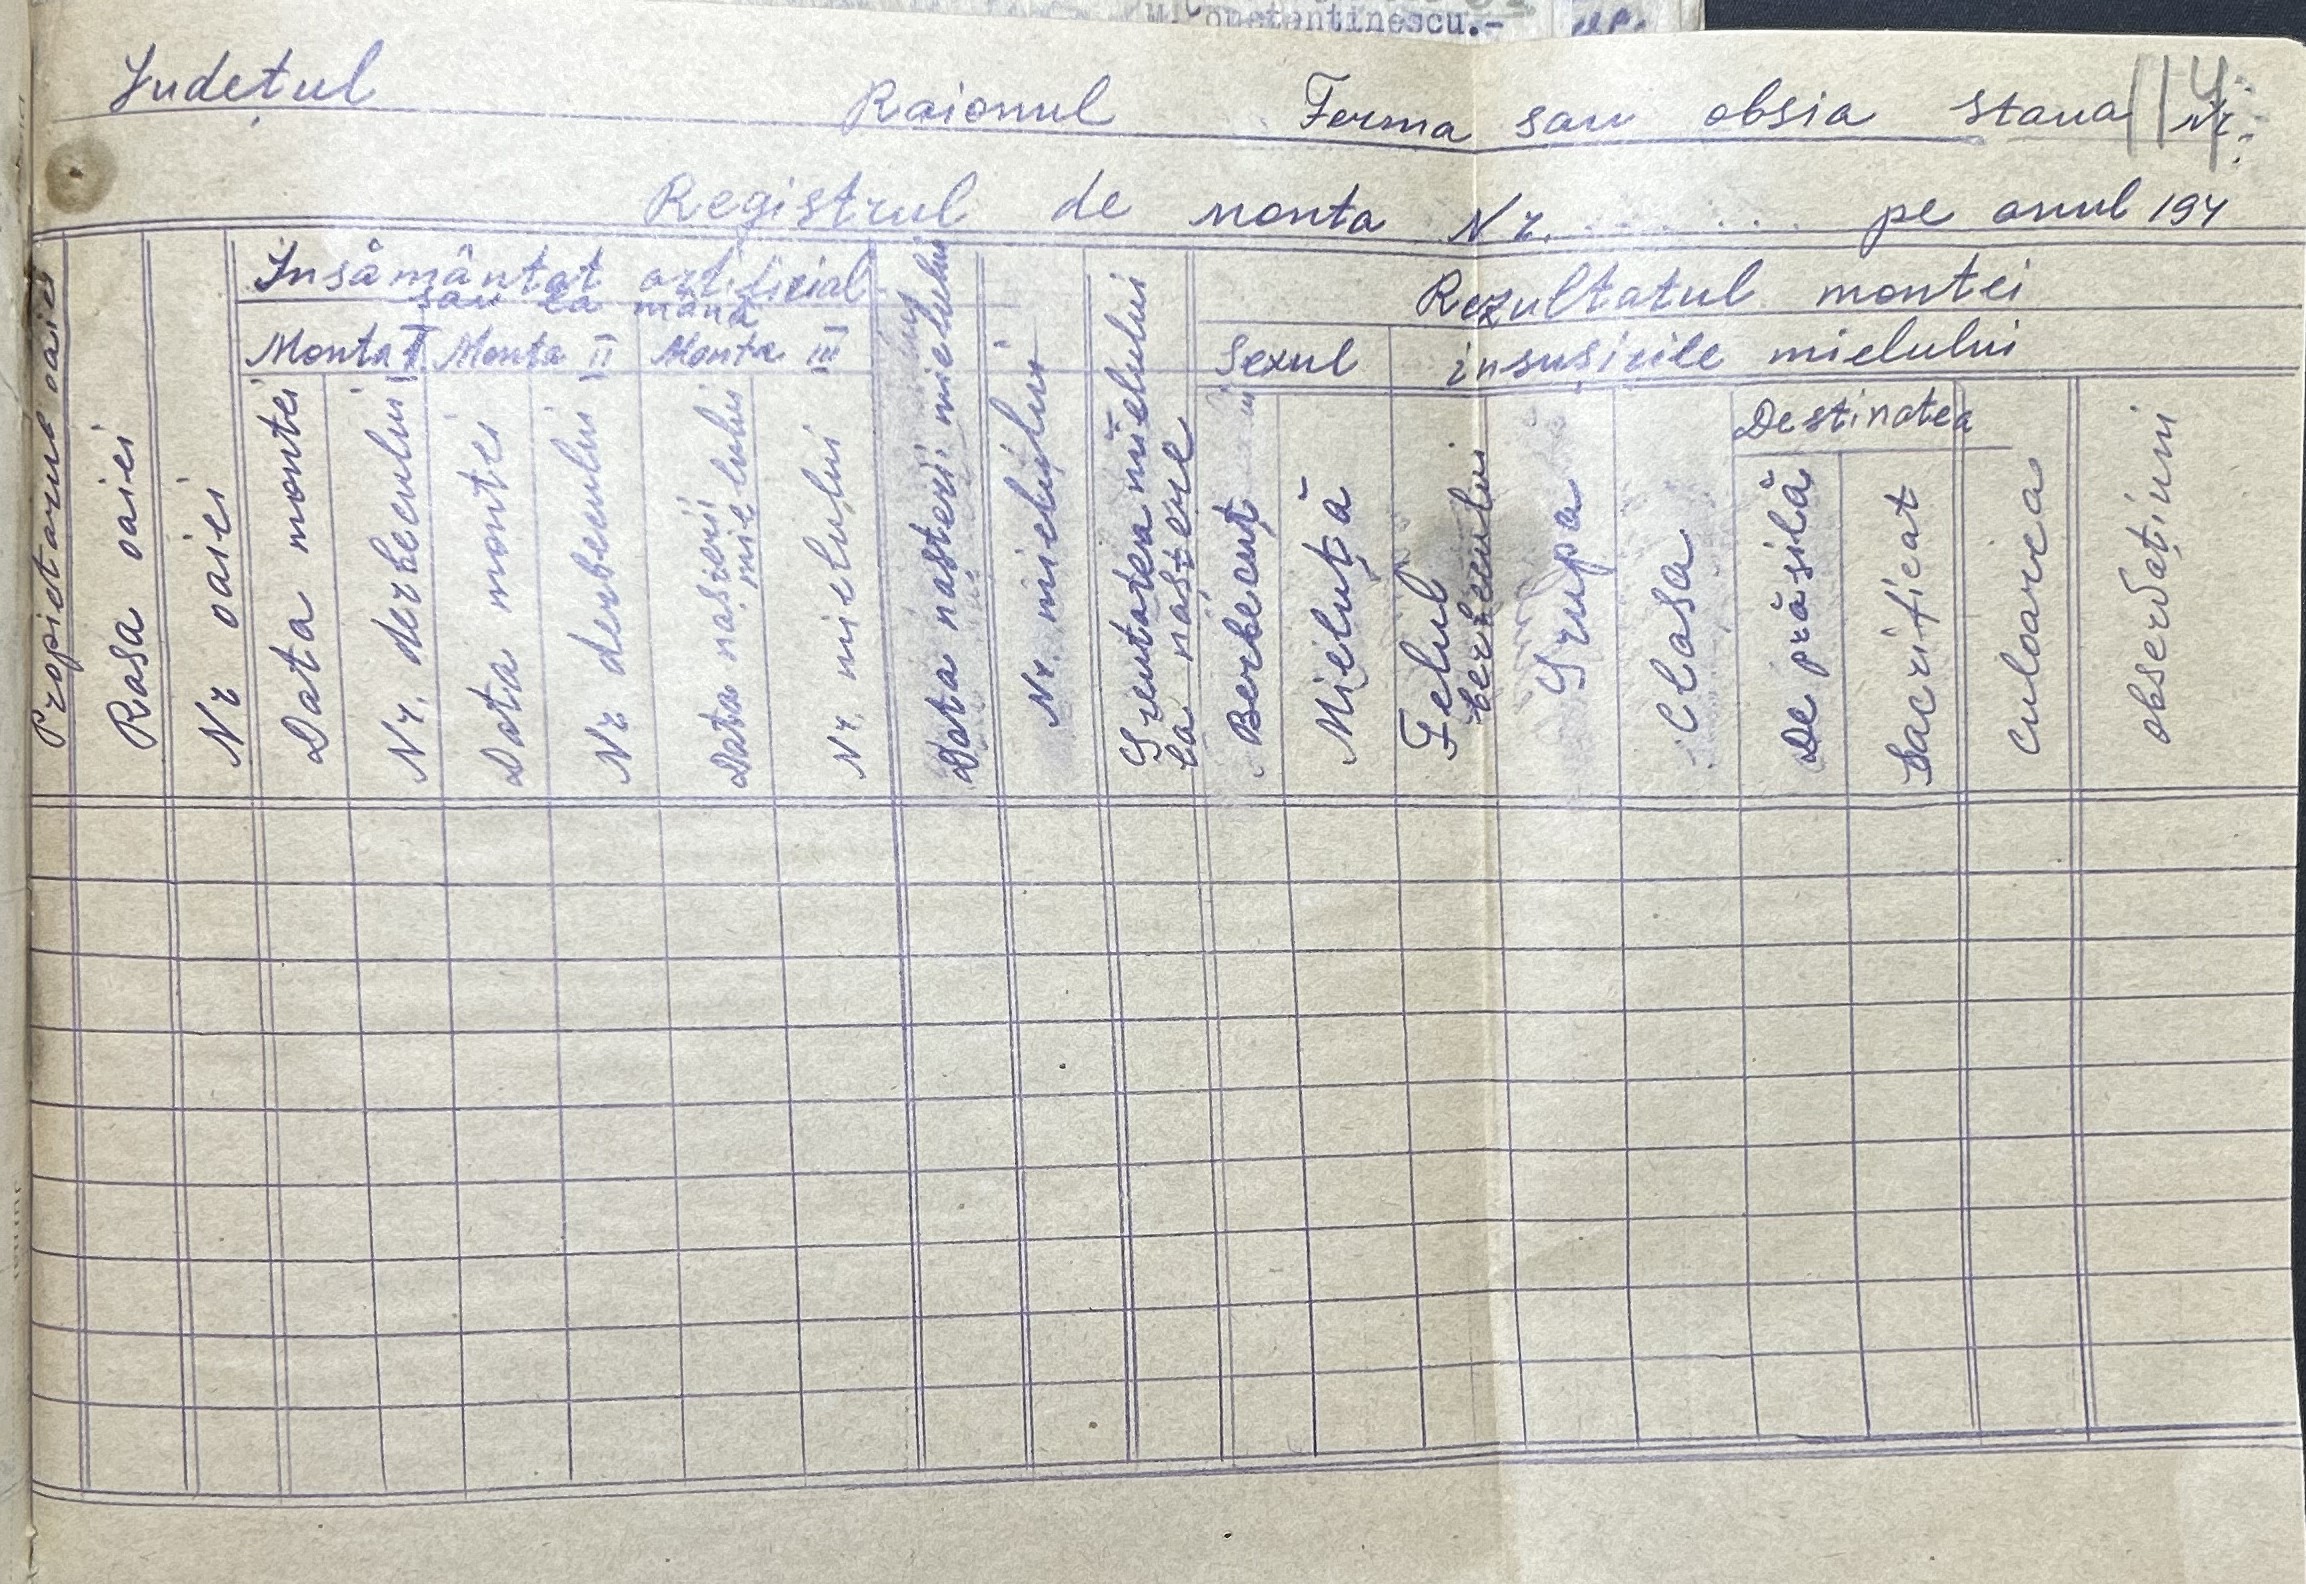 onstantinescu.-
Județul Raionul Ferma sau obsia stana Nr.
114
Registrul de monta Nr. ........ pe anul 194
Propietarul oaiei
Rasa oaiei
Nr oaiei
Insămăntat artificial
sau la mână
Monta I Monta II Monta III
Data montei
Nr. derbecului
Data montei
Nr derbecului
Data nașterii
mielului
Nr. mielului
Data nașterii mielului
Nr. mielului
Greutatea mielului
la naștere
Rezultatul montei
Sexul insușirile mielului
Berbecuț
Mieluță
Felul
berbecului
Grupa
Clasa
Destinatea
De prăsilă
Sacrificat
Culoarea
observațiuni